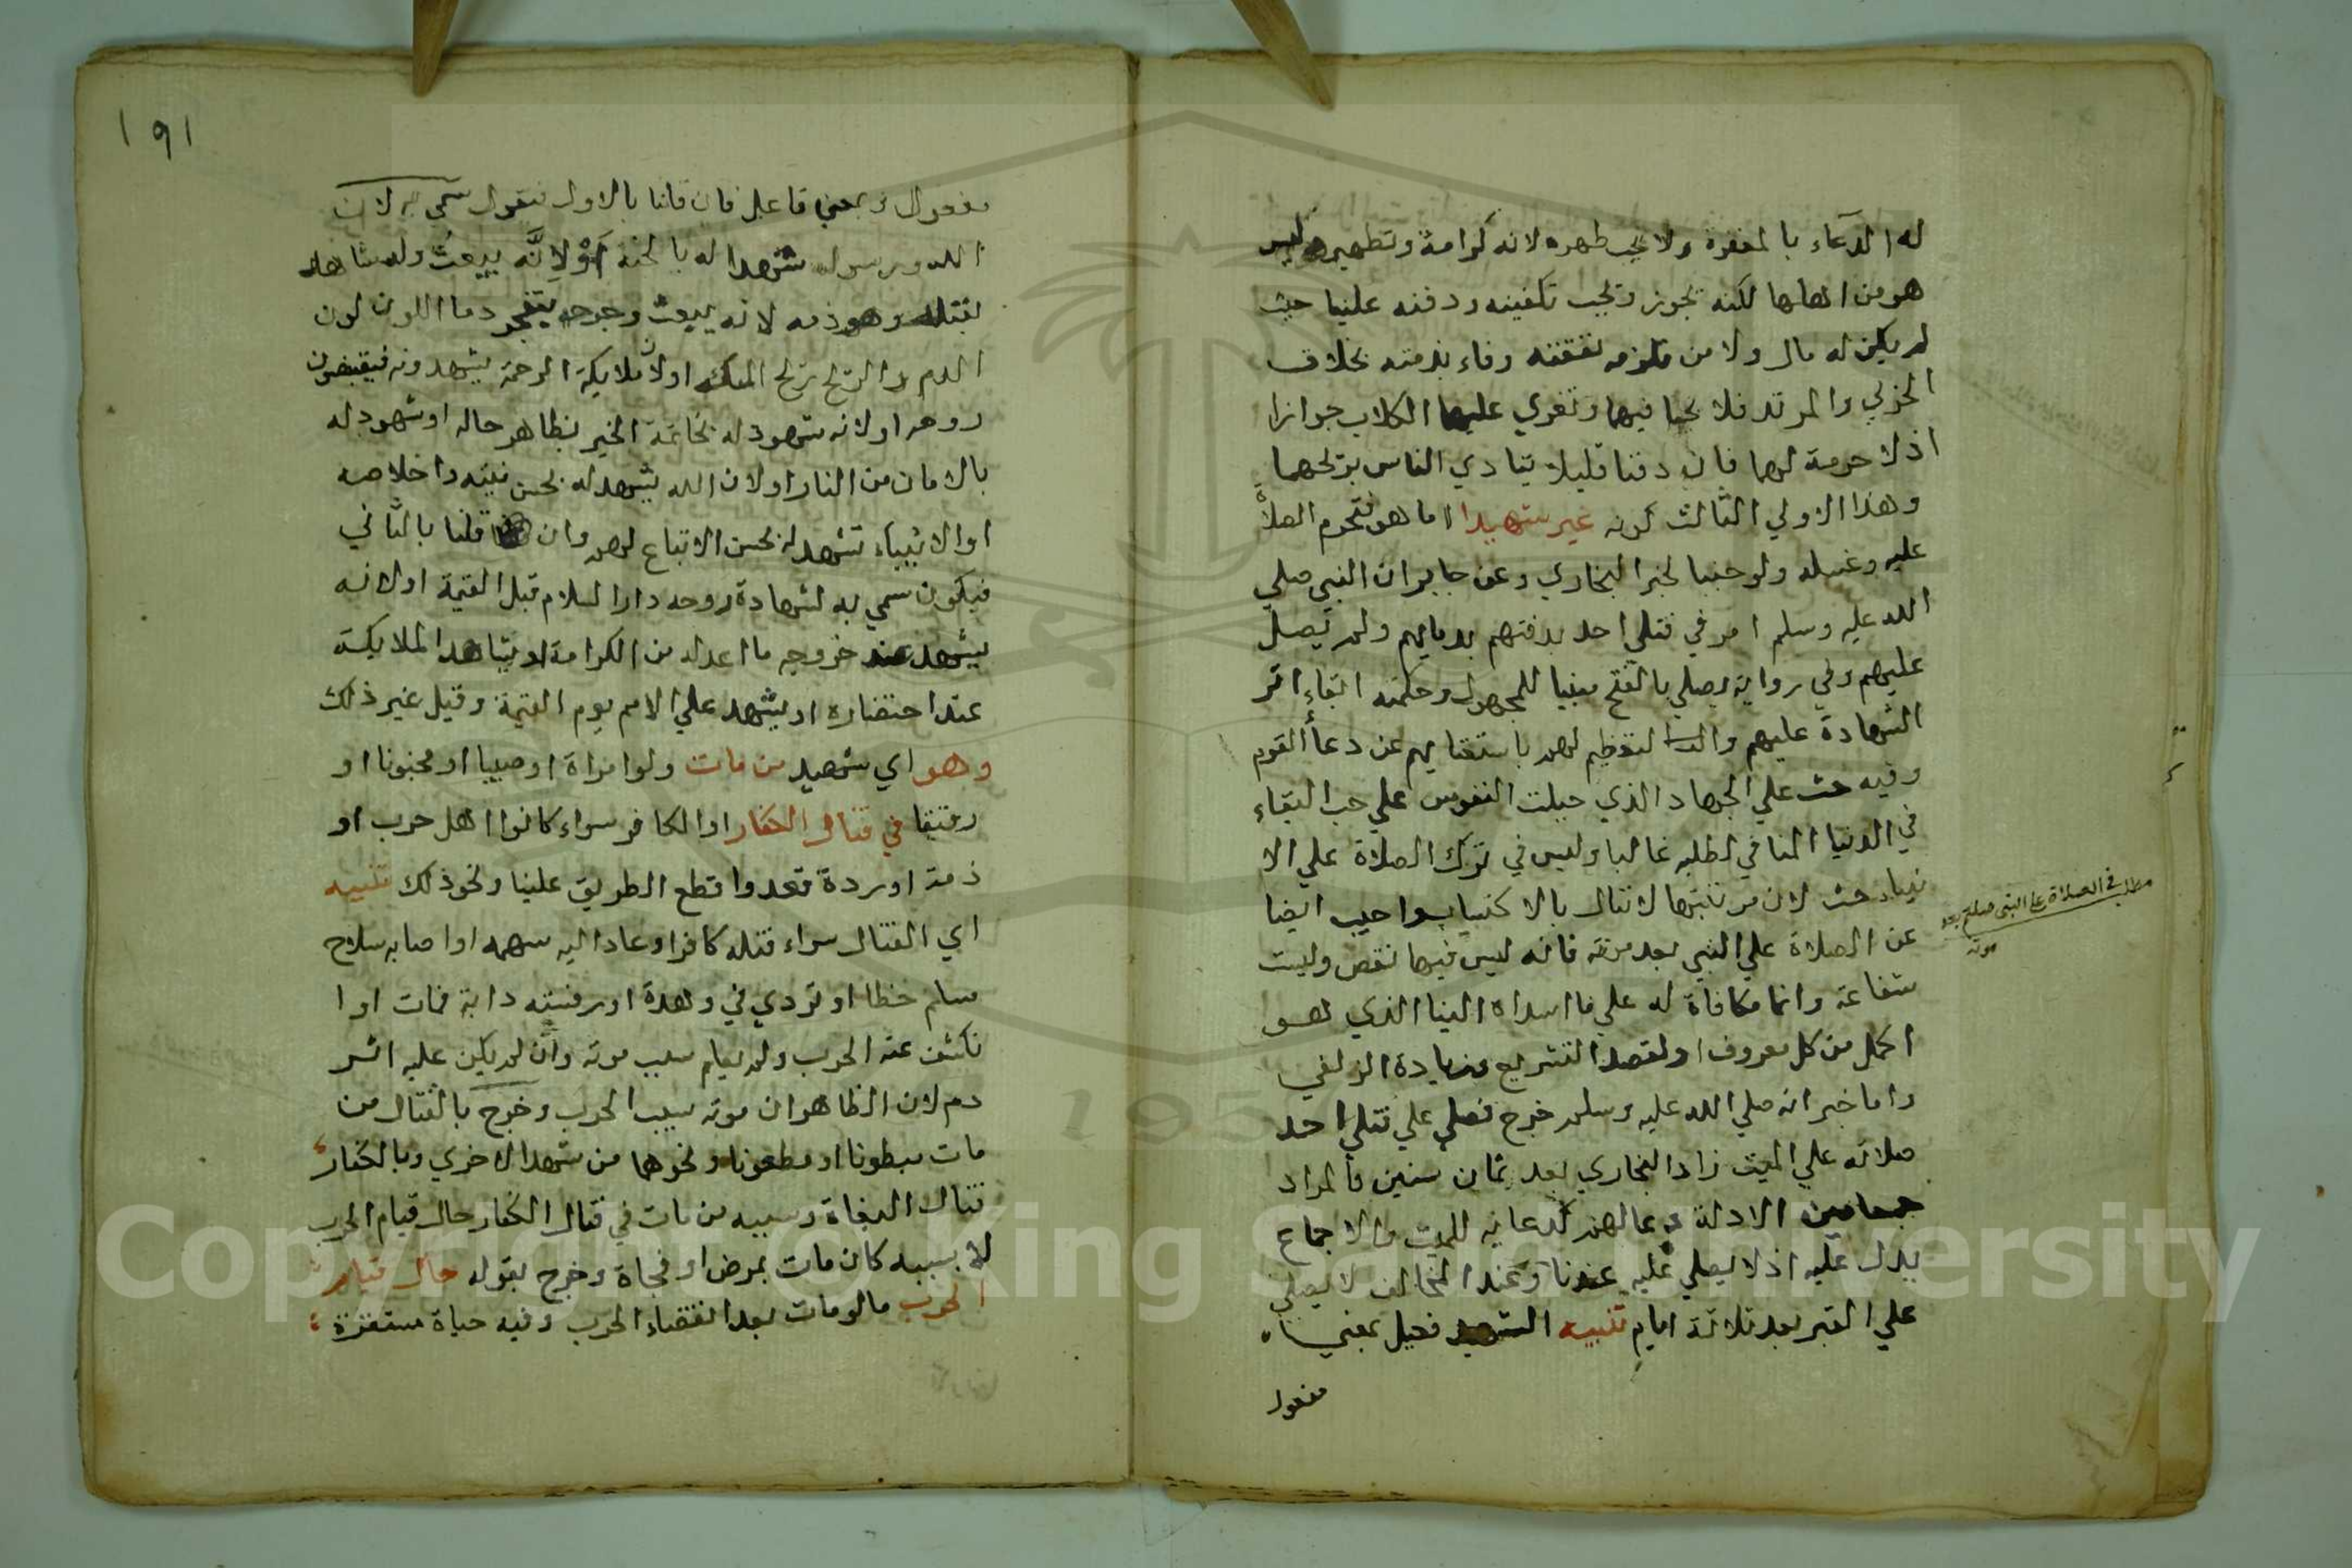 له الدعاء بالمغفرة ولا يجب طهره لانه كرامة وتطهير وليس
هو من اهلها لكنه يجوز ويجب تكفينه ودفنه علينا حيث
لم يكن له مال ولا من تلزمه نفقته وفاء بذمته بخلاف
الحربي والمرتد فلا يجبا فيهما وتغري عليهما الكلاب جوازا
اذ لا حرمة لهما فان دفنا فليلا يتاذي الناس بريحهما
وهذا الاولي الثالث كونه غير شهيد اما هو فتحرم الصلاة
عليه وغسله ولو جنبا لخبر البخاري وعن جابر ان النبي صلي
الله عليه وسلم امر في قتلي احد بدفنهم بدمايهم ولم يصل
عليهم وفي رواية يصلي بالفتح مبنيا للمجهول وحكمته ابقاء اثر
الشهادة عليهم والتعظيم لهم باستغنايهم عن دعاء القوم
وفيه حث علي الجهاد الذي جبلت النفوس علي حب البقاء
في الدنيا المنافي لطلبه غالبا وليس في ترك الصلاة علي الا
نبياء حث لان مرتبتها لا تنال بالاكتساب واجيب ايضا
عن الصلاة علي النبي بعد موته فانه ليس فيها نقص وليست
شفاعة وانما مكافاة له علي ما اسداه الينا الذي هو
اكمل من كل معروف او لقصد التشريع وزيادة الزلفي
واما خبر انه صلي الله عليه وسلم خرج فصلي علي قتلي احد
صلاته علي الميت زاد البخاري بعد ثمان سنين فالمراد
جمعا بين الادلة دعا لهم كدعايه للميت والاجماع
يدل عليه اذ لا يصلي عليه عندنا وعند المخالف لا يصلي
علي القبر بعد ثلاثة ايام تنبيه الشهيد فعيل بمعني
مفعول
مطلب في الصلاة علي النبي صلعم بعد
موته
١٩١
مفعول او بمعني فاعل فان قلنا بالاول فنقول سمي به لان
الله ورسوله شهدا له بالجنة او لانه يبعث وله شاهد
بقتله وهو دمه لانه يبعث وجرحه يتفجر دما اللون لون
الدم والريح ريح المسك او لان ملايكة الرحمة يشهدونه فيقبضون
روحه او لانه شهود له بخاتمة الخير بظاهر حاله او شهود له
بالامان من النار او لان الله يشهد له بحسن نيته واخلاصه
او الانبياء تشهد له بحسن الاتباع لهم وان قلنا بالثاني
فيكون سمي به لشهادة روحه دار السلام قبل القيمة او لانه
يشهد عند خروجه ما اعد له من الكرامة او يشاهد الملايكة
عند احتضاره او يشهد علي الامم يوم القيمة وقيل غير ذلك
وهو اي شهيد من مات ولو امراة او صبيا او مجنونا او
رقيقا في قتال الكفار او الكافر سواء كانوا اهل حرب او
ذمة او ردة قصدوا قطع الطريق علينا ونحو ذلك تنبيه
اي القتال سواء قتله كافر او عاد اليه سهمه او اصابه سلاح
مسلم خطا او تردي في وهدة او رفسته دابة فمات او ا
نكشف عنه الحرب ولم يعلم سبب موته وان لم يكن عليه اثر
دم لان الظاهر ان موته بسبب الحرب وخرج بالقتال من
مات مبطونا او مطعونا ونحوهما من شهدا الاخري وبالكفار
قتال البغاة وبسببه من مات في قتال الكفار حال قيام الحرب
لا بسببه كان مات بمرض او فجاة وخرج بقوله حال قيام
الحرب ما لو مات بعد انقضاء الحرب وفيه حياة مستقرة
Copyright © King Saud University
195